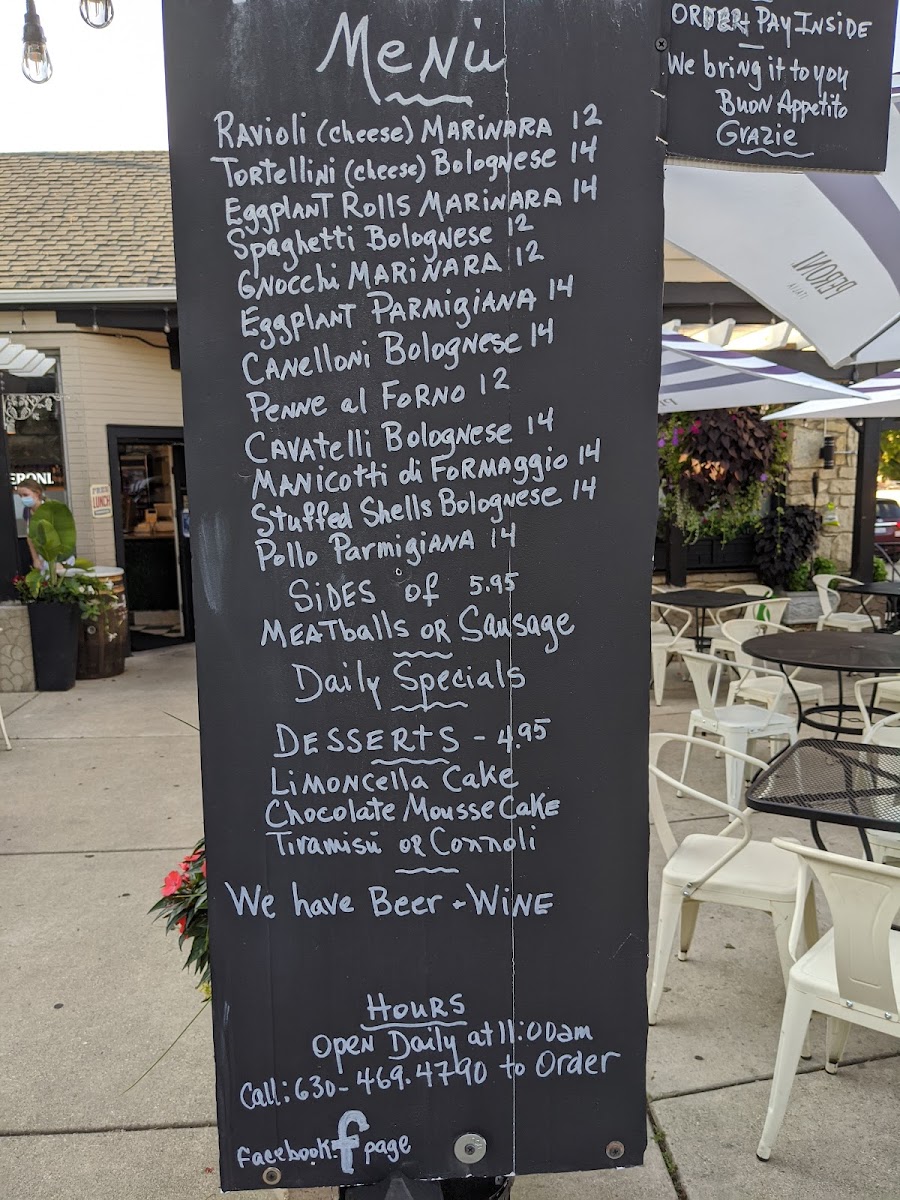 Menù
Ravioli (cheese) MARINARA 12
Tortellini (cheese) Bolognese 14
Eggplant Rolls MARINARA 14
Spaghetti Bolognese 12
GNocchi MARINARA 12
Eggplant Parmigiana 14
Canelloni Bolognese 14
Penne al Forno 12
Cavatelli Bolognese 14
Manicotti di Formaggio 14
Stuffed Shells Bolognese 14
Pollo Parmigiana 14
Sides of 5.95
Meatballs or Sausage
Daily Specials
Desserts - 4.95
Limoncella Cake
Chocolate Mousse Cake
Tiramisú or Connoli
We have Beer + Wine
Hours
Open Daily at 11:00am
Call: 630-469.4790 to Order
facebook f page
ORDER + PAY INSIDE
We bring it to you
Buon Appetito
Grazie
PERONI
ITALIA
ERONI
LUNCH